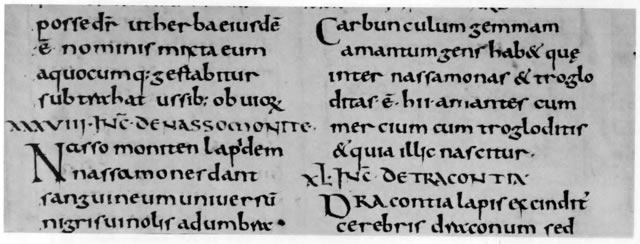 possedr̄ ut herba eiusdē
ē nominis mixta eum
a quocumq: gestabitur
subtrahat ussib: obuior̨
XXXVIII·INC̄·DE NASSOMONITE·
Nassomoniten lapidem
nassamones dant
sanguineum uniuersū
nigris uinolis adumbrat·
Carbunculum gemmam
amantum gens hab& quę
inter nassamonas & troglo
ditas ē· hii amantes cum
mercium cum trogloditis
& quia illic nascitur.
XL·INC̄·DE TRACONTIA
DRacontia lapis excindit̄
cerebris draconum sed